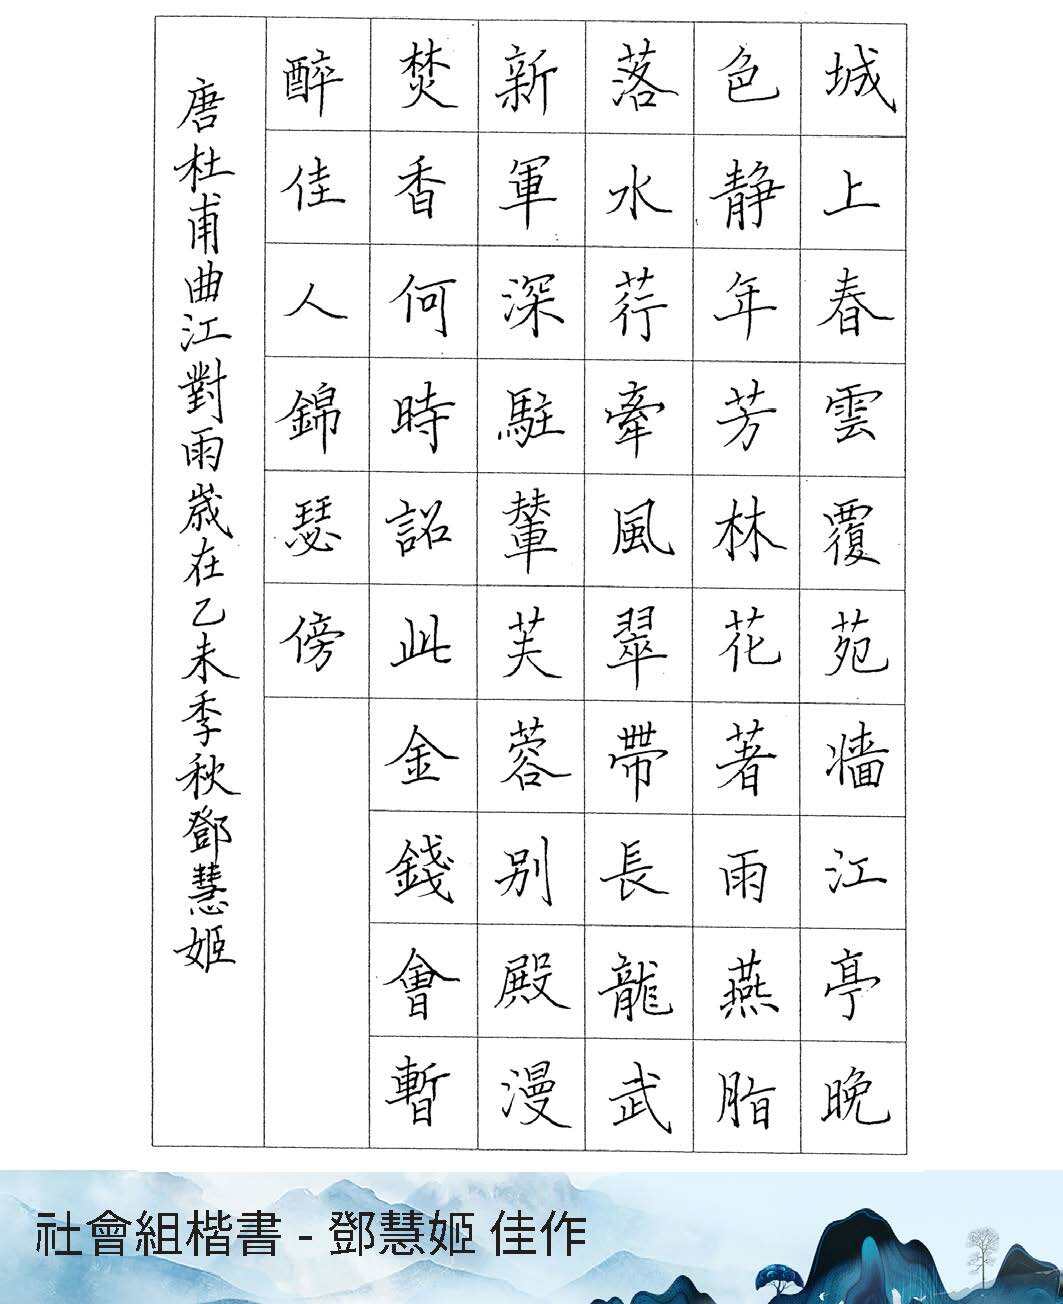 城上春雲覆苑墻江亭晚
色静年芳林花著雨燕脂
落水荇牽風翠帶長龍武
新軍深駐輦芙蓉別殿漫
焚香何時詔此金錢會暫
醉佳人錦瑟傍
唐杜甫曲江對雨歲在乙未季秋鄧慧姬
社會組楷書 - 鄧慧姬 佳作